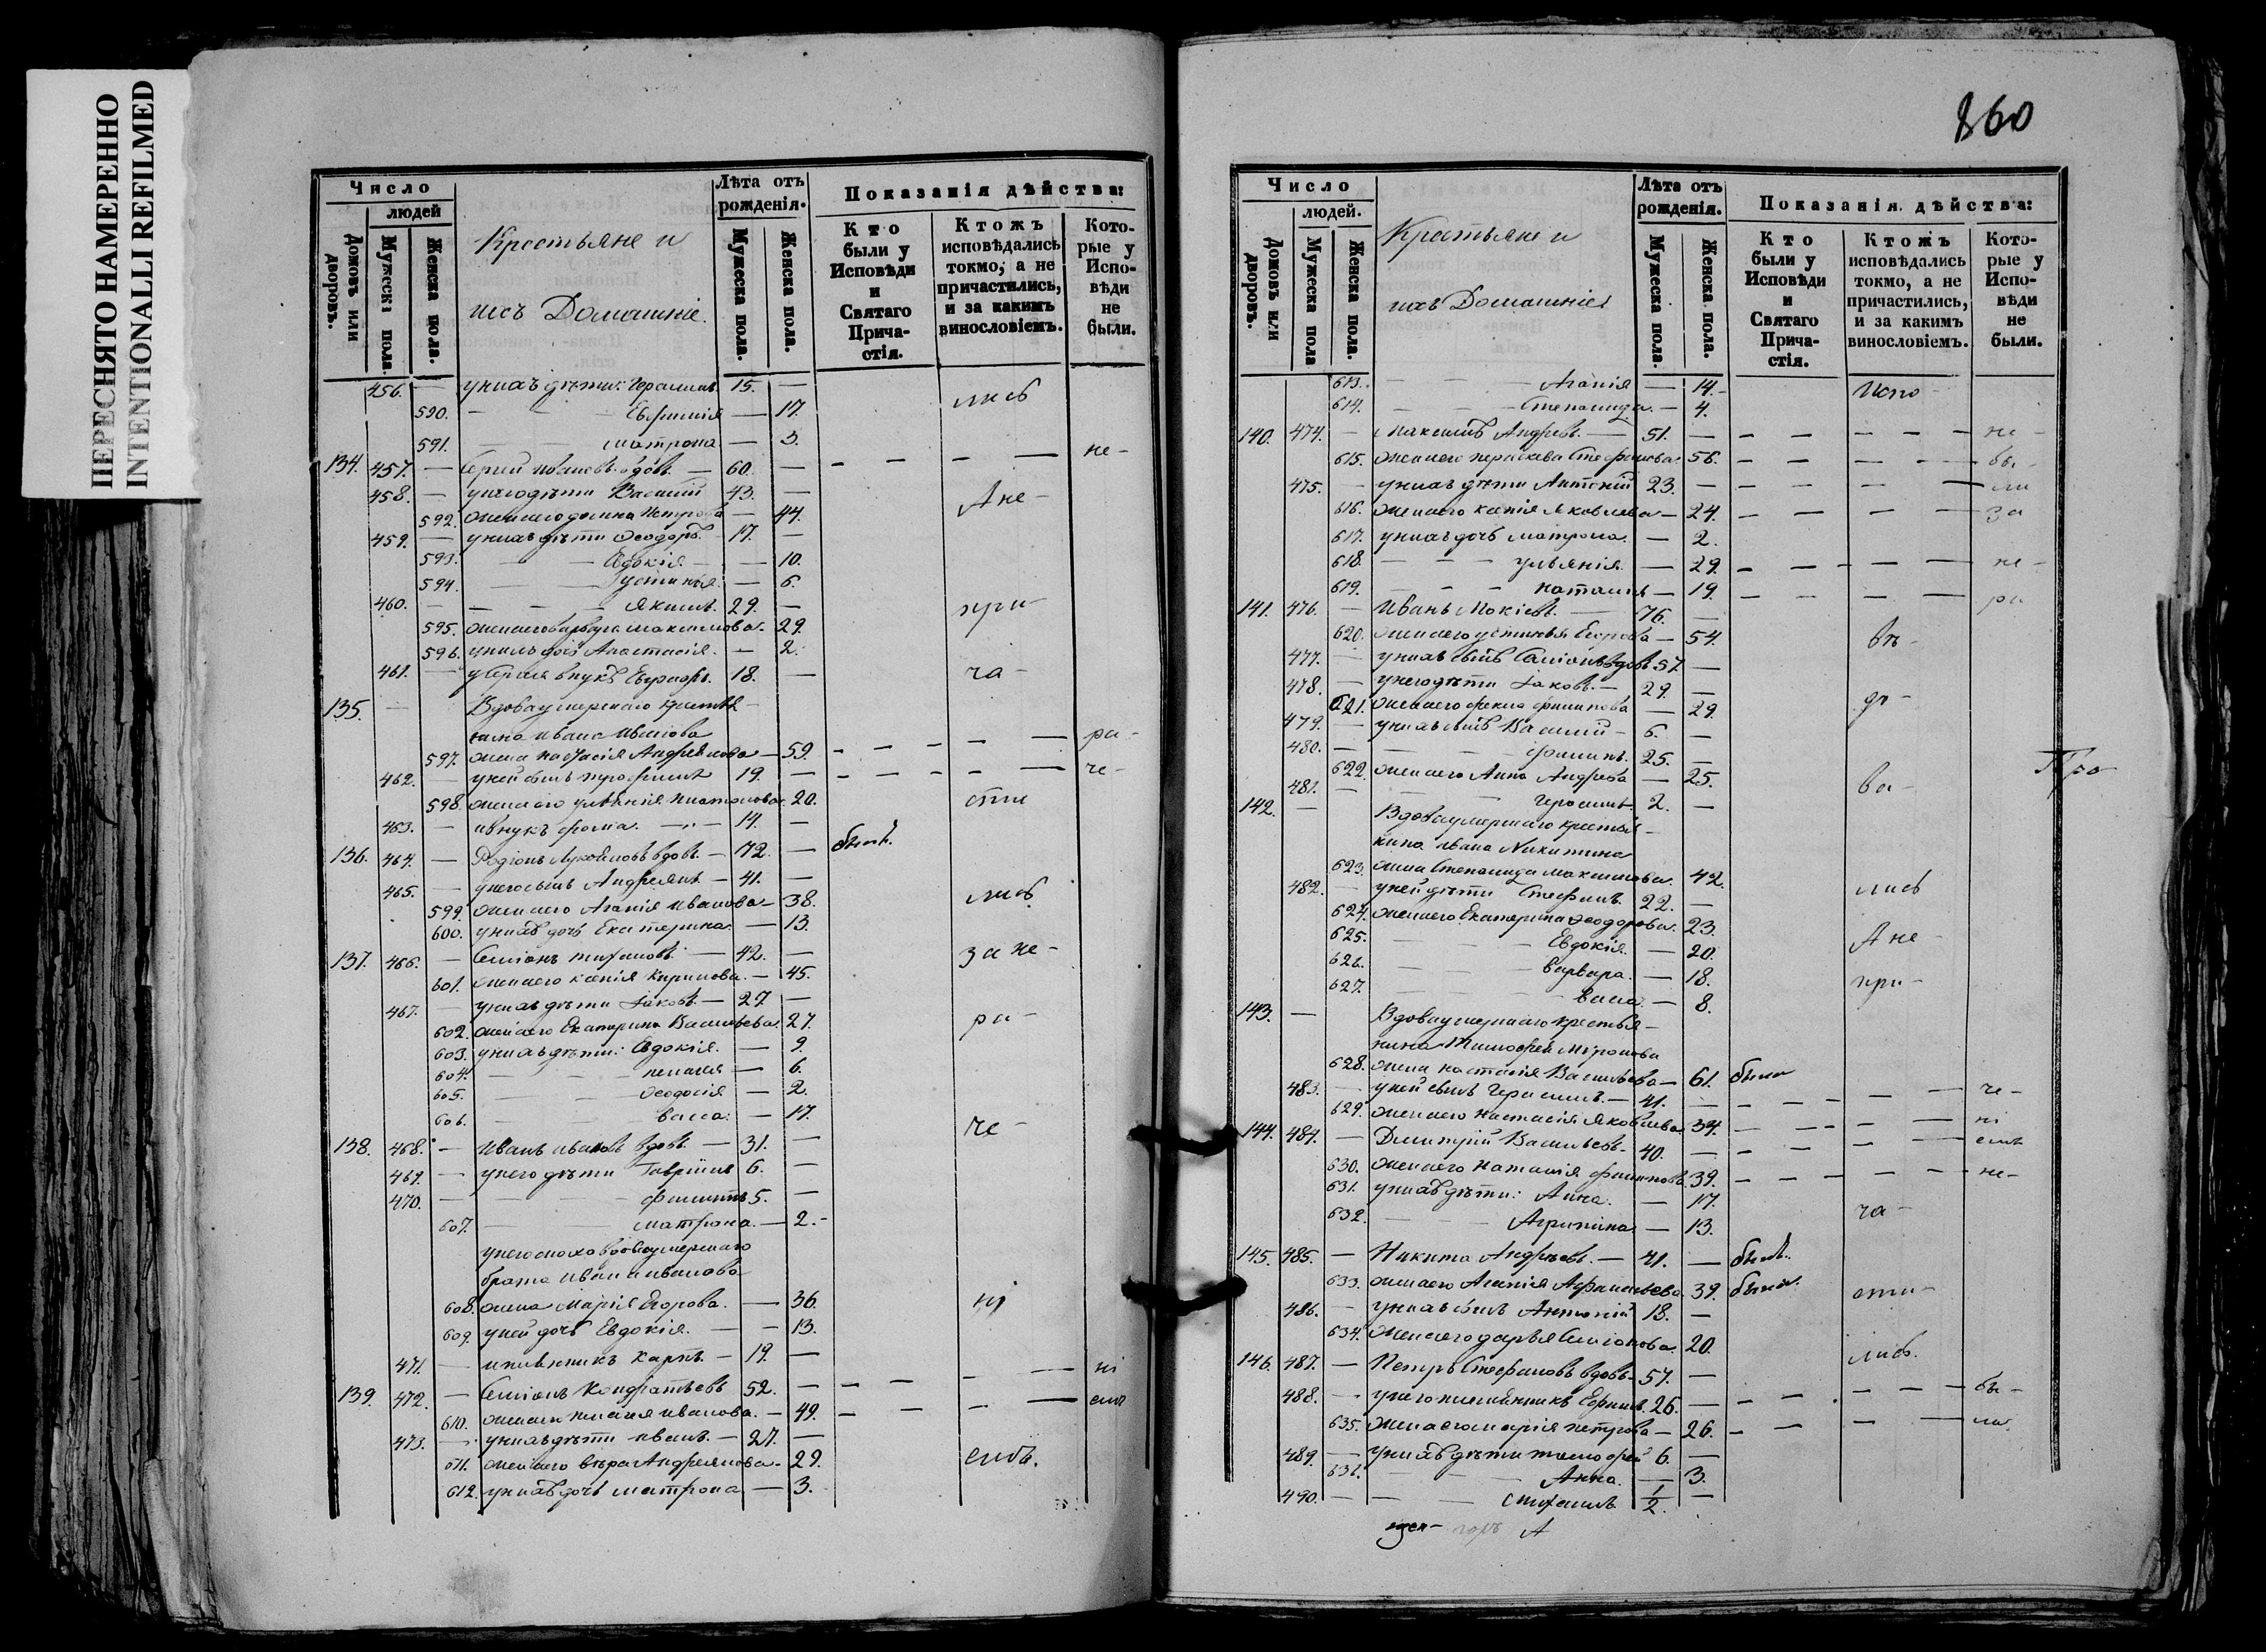 ПЕРЕСНЯТО НАМЕРЕННО
INTENTIONALLI REFILMED
Число
людей
Домовъ или дворовъ.
Мужеска пола.
Женска пола.
Крестьяне и
ихъ Домашніе.
Лѣта отъ рожденія.
Мужеска пола.
Женска пола.
Показанія дѣйства:
Кто были у Исповѣди и Святаго Причастія.
Ктожъ исповѣдались токмо, а не причастились, и за какимъ винословіемъ.
Которые у Исповѣди не были.
456. — у нихъ дѣти: Герасимъ 15. — лись
590. — — Евфимія — 17.
591. — — Матрона — 3.
134. 457. — Сергій Ивановъ вдовъ — 60. — — — — — не-
458. — у него дѣти Василій 43. —
592. жена его Домна Петрова — 44. А не-
459. — у нихъ дѣти Ѳеодоръ 17. —
593. — — Евдокія — 10.
594. — — Іустинія — 6.
460. — — — Якимъ 29. — при-
595. жена его Варвара Максимова — 29.
596. у нихъ дочь Анастасія — 2.
461. — у Сергія внукъ Евграфъ 18. — ча-
135. — Вдова умершаго крестья-
нина Ивана Иванова
597. жена Настасія Андреянова — 59. — — — — — ра-
462. — у ней сынъ Трофимъ 19. — — — — — — че-
598. жена его Ульянія Платонова 20. сти
463. — внукъ Фома — 14. —
136. 464. — Родіонъ Лукояновъ вдовъ — 72. — былъ
465. — у него сынъ Андреянъ — 41. —
599. жена его Агапія Иванова — 38. лись
600. у нихъ дочь Екатерина — 13.
137. 466. — Семіонъ — 42. — за не-
601. жена его Ксенія Кирилова — 45.
467. — у нихъ дѣти Іаковъ — 27 —
602. жена его Екатерина Васильева 27. ра-
603. у нихъ дѣти: Евдокія — 9.
604. — — Пелагія — 6.
605. — — Ѳеодосія — 2.
606. — — Васса — 17.
138. 468. — Иванъ Ивановъ вдовъ — 31. — че-
469. — у него дѣти Гавріилъ 6. —
470. — — — Филиппъ 5. —
607. — — Матрона — 2.
у него сноха вдова умершаго
брата Ивана Иванова
608. жена Марія Егорова — 36. ні
609. у ней дочь Евдокія — 13.
471. — племянникъ Карпъ — 19. —
139. 472. — Семіонъ Кондратьевъ 52. — — — — — ні
610. жена его Пелагія Иванова — 49. — — — — емъ
473. — у нихъ дѣти Иванъ — 27. —
611. жена его Вѣра Андреянова 29. емъ.
612. у нихъ дочь Матрона — 3.
860
Число
людей.
Домовъ или дворовъ.
Мужеска пола
Женска пола.
Крестьяне и
ихъ Домашніе
Лѣта отъ рожденія.
Мужеска пола.
Женска пола.
Показанія дѣйства:
Кто были у Исповѣди и Святаго Причастія.
Ктожъ исповѣдались токмо, а не причастились, и за какимъ винословіемъ.
Которые у Исповѣди не были.
613. — — — Агапія — 14. Испо-
614. — — — Степанида — 4.
140. 474. — Максимъ Андреевъ — 51. — — — — — — не-
615. жена его Параскева Стефанова 56. — — — — — бы-
475. — у нихъ дѣти Антоній 23. — — — — — ли
616. жена его Ксенія Яковлева — 24. — — — — за
617. у нихъ дочь Матрона — 2.
618. — — — Ульянія — 29. — — — — — не-
619. — — — — 19. — — — — ра
141. 476. — Иванъ Мокіевъ — 76. —
620. жена его Устинья Егорова — 54. вѣ-
477. — у нихъ сынъ Семіонъ вдовъ 57. —
478. — у него дѣти Іаковъ — 29. —
621. жена его Фекла Филипова — 29. до-
479. — у нихъ сынъ Василій — 6. —
480. — — — Филипъ 25. —
622. жена его Анна Андреева — 25. ва-
Тро
481. — — — Герасимъ 2. —
142. — Вдова умершаго крестья-
нина Ивана Никитина
623. жена Степанида Максимова 42.
482. — у ней дѣти Стефанъ 22. — лись
624. жена его Екатерина Ѳеодорова 23.
625. — — — Евдокія — 20. А не-
626. — — — Варвара — 18.
627. — — — Васса — 8. при-
143. — Вдова умершаго крестья-
нина Тимофея Миронова
628. жена Настасія Васильева — 61. была
483. — у ней сынъ Герасимъ — 41. — — — — — че-
629. жена его Настасія Яковлева 34. — — — — ні
144. 484. — Дмитрій Васильевъ — 40. — — — — емъ
630. жена его Наталія Филипова 39. — — — — не-
631. у нихъ дѣти: Анна — 17.
632. — — — Агрипина — 13. ча-
145. 485. — Никита Андреевъ — 41. — былъ.
633. жена его Агапія Афанасьева 39. была. сти-
486. — у нихъ сынъ Антоній 18. —
634. жена его Дарья Семіонова 20.
146. 487. — Петръ Стефановъ вдовъ — 57. — лись.
488. — у него племянникъ Ефимъ 26. — — — — — бы-
635. жена его Марія Петрова — 26. — — — — ли.
489. — у нихъ дѣти Тимофей 6. —
636. — — — Анна — 3.
490. — — — Стефанъ 1/2 —